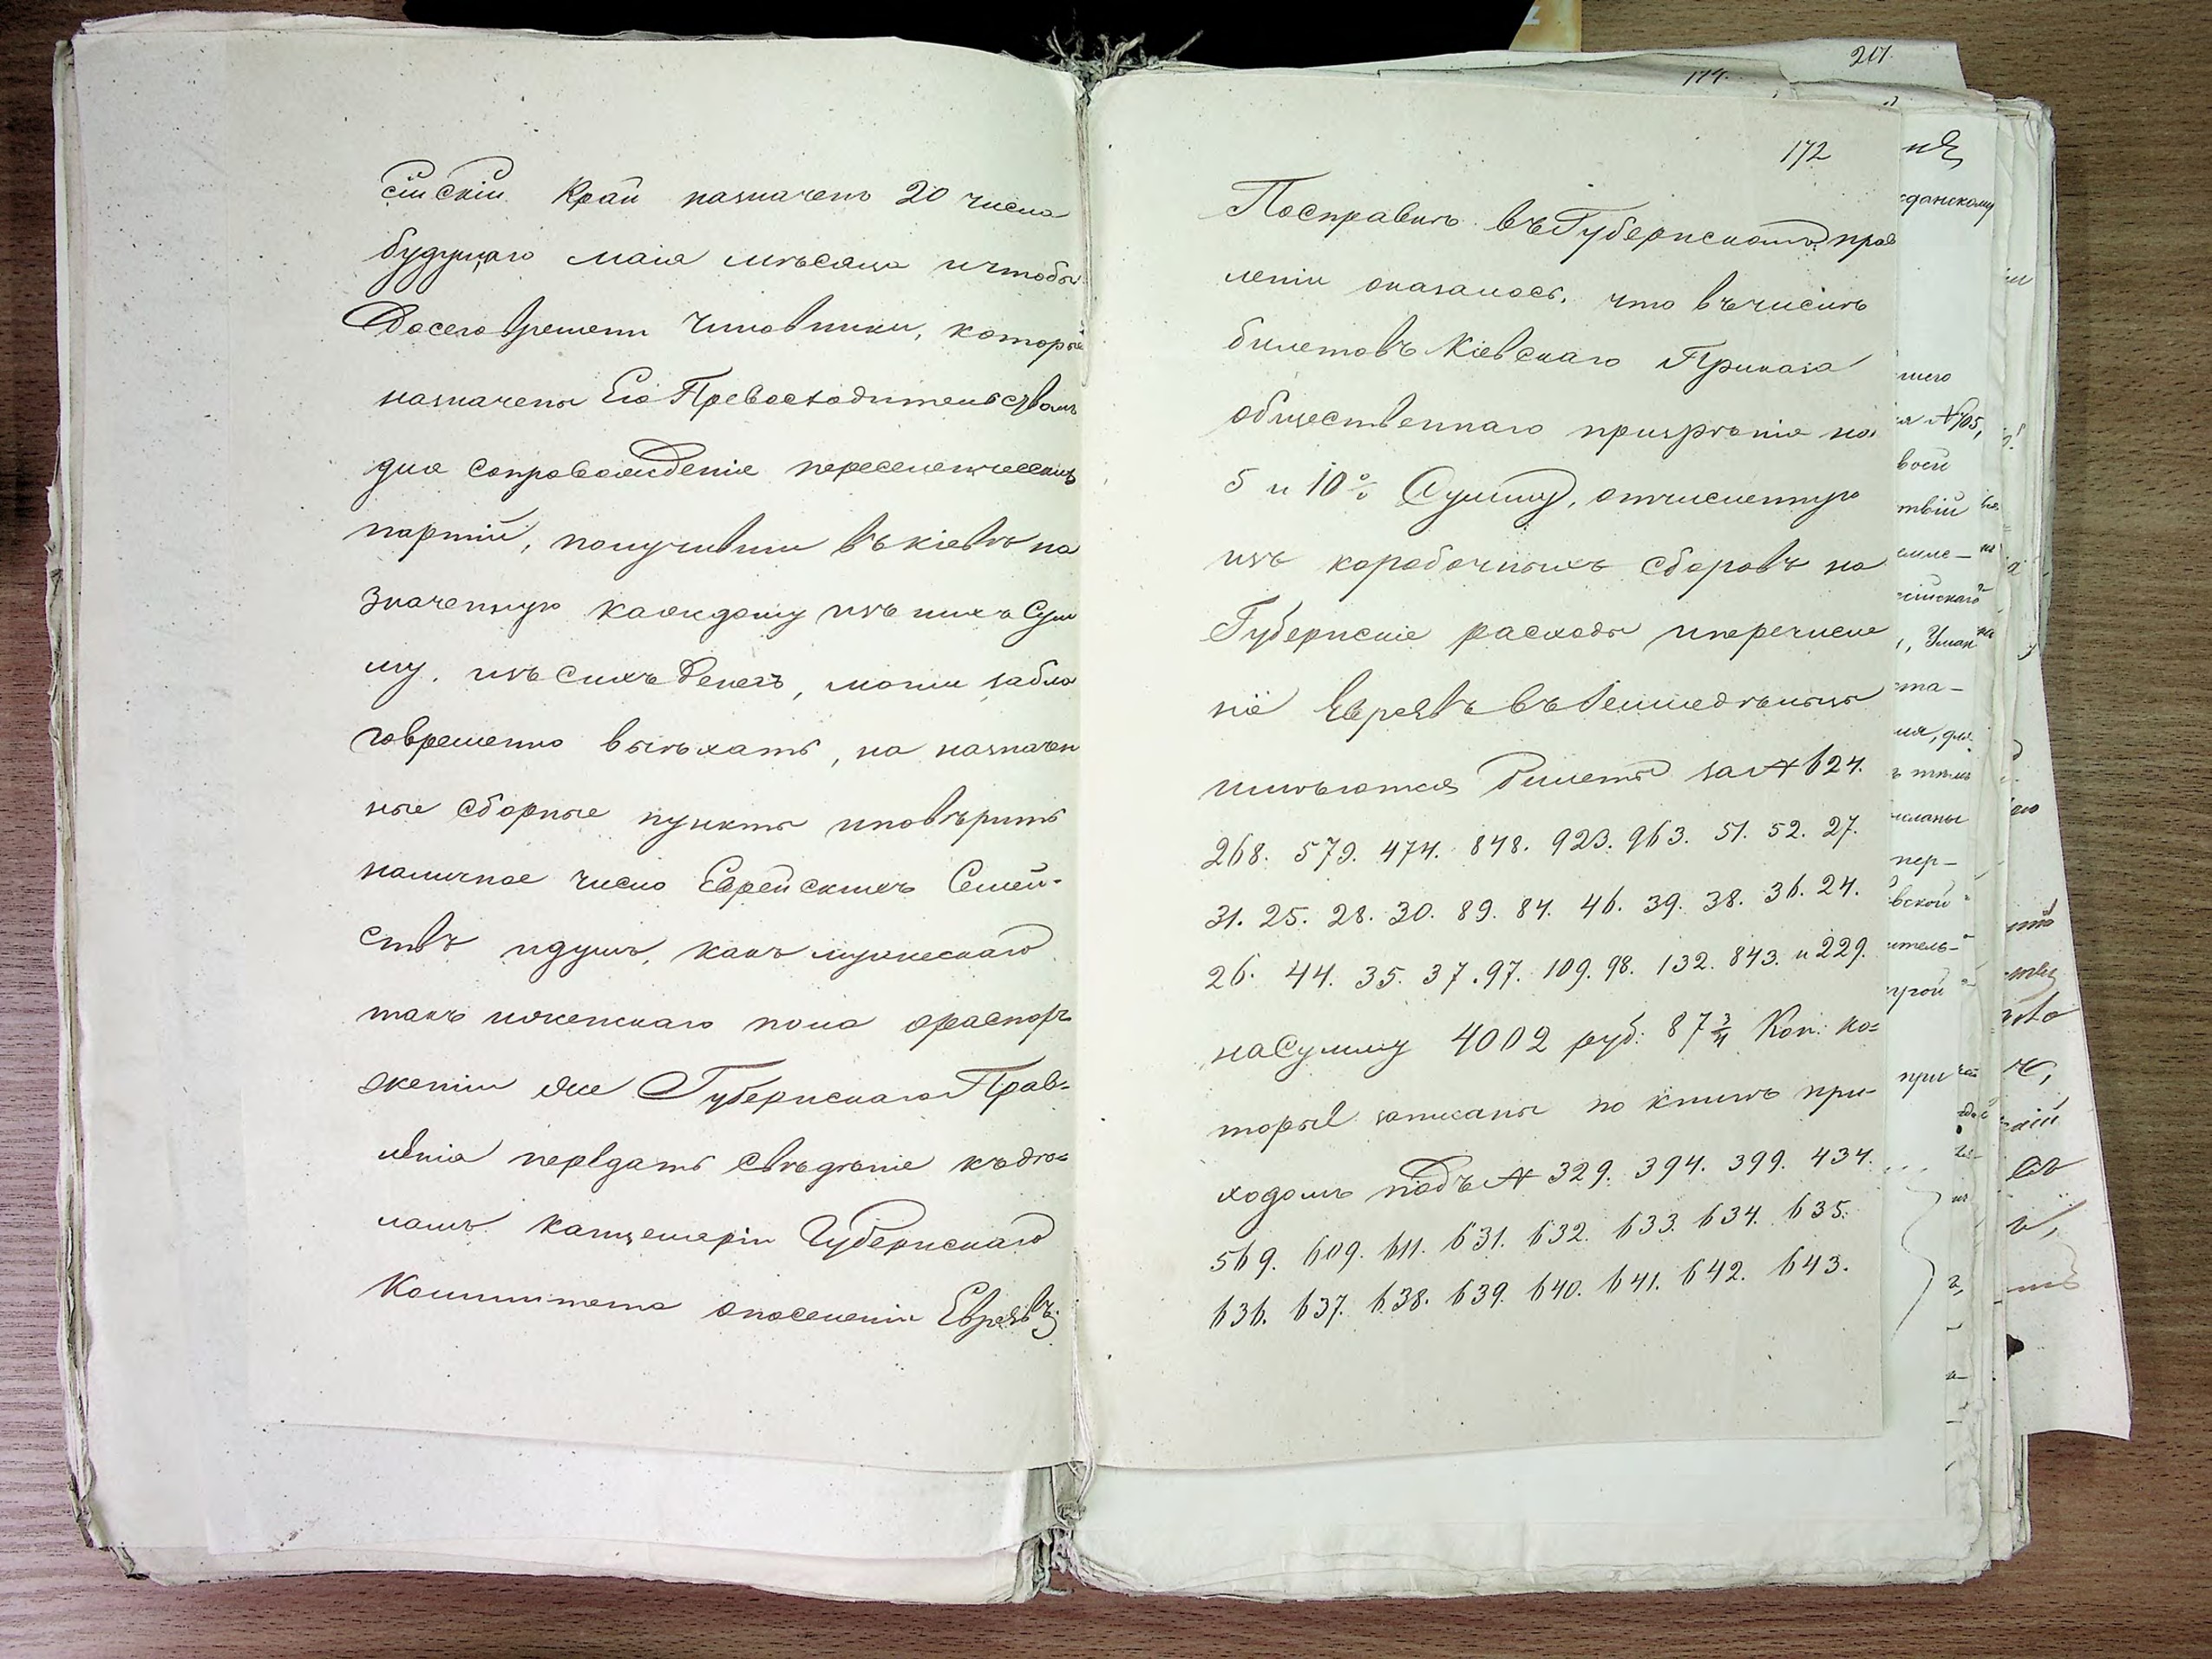 сійскій Край назначено 20 числа
будущаго маія мѣсяца и чтобы
до сего времени Чиновники, которые
назначены Его Превосходительствомъ
для сопровожденія переселенческихъ
партій, получивши въ Кіевѣ на
значенную каждому изъ нихъ Сум
му, изъ сихъ денегъ, могли забла
говременно выѣхать, на назначен
ные сборные пункты и повѣрить
наличное число Еврейскихъ Семей-
ствъ и душъ, какъ мужескаго
такъ и женскаго пола о распоря
женіи же Губернскаго Прав-
ленія передать свѣдѣніе къ дѣ-
ламъ канцеляріи Губернскаго
Комитета о поселеніи Евреевъ
172
По справкѣ въ Губернскомъ прав
леніи оказалось, что въ числѣ
билетовъ Кіевскаго Приказа
общественнаго призрѣнія на
5 и 10% Сумму, отчисленную
изъ коробочныхъ сборовъ на
Губернскіе расходы и перечисле
ніе Евреевъ въ земледѣльцы
имѣются билеты за № 624.
268. 579. 474. 848. 923. 963. 51. 52. 27.
31. 25. 28. 30. 89. 84. 46. 39. 38. 36. 24.
26. 44. 35. 37. 97. 109. 98. 132. 843. и 229.
на Сумму 4002 руб: 87 3/4 Коп: ко=
торые записаны по книгѣ при-
ходомъ подъ № 329. 394. 399. 434.
569. 609. 611. 631. 632. 633. 634. 635.
636. 637. 638. 639. 640. 641. 642. 643.
174.
217.